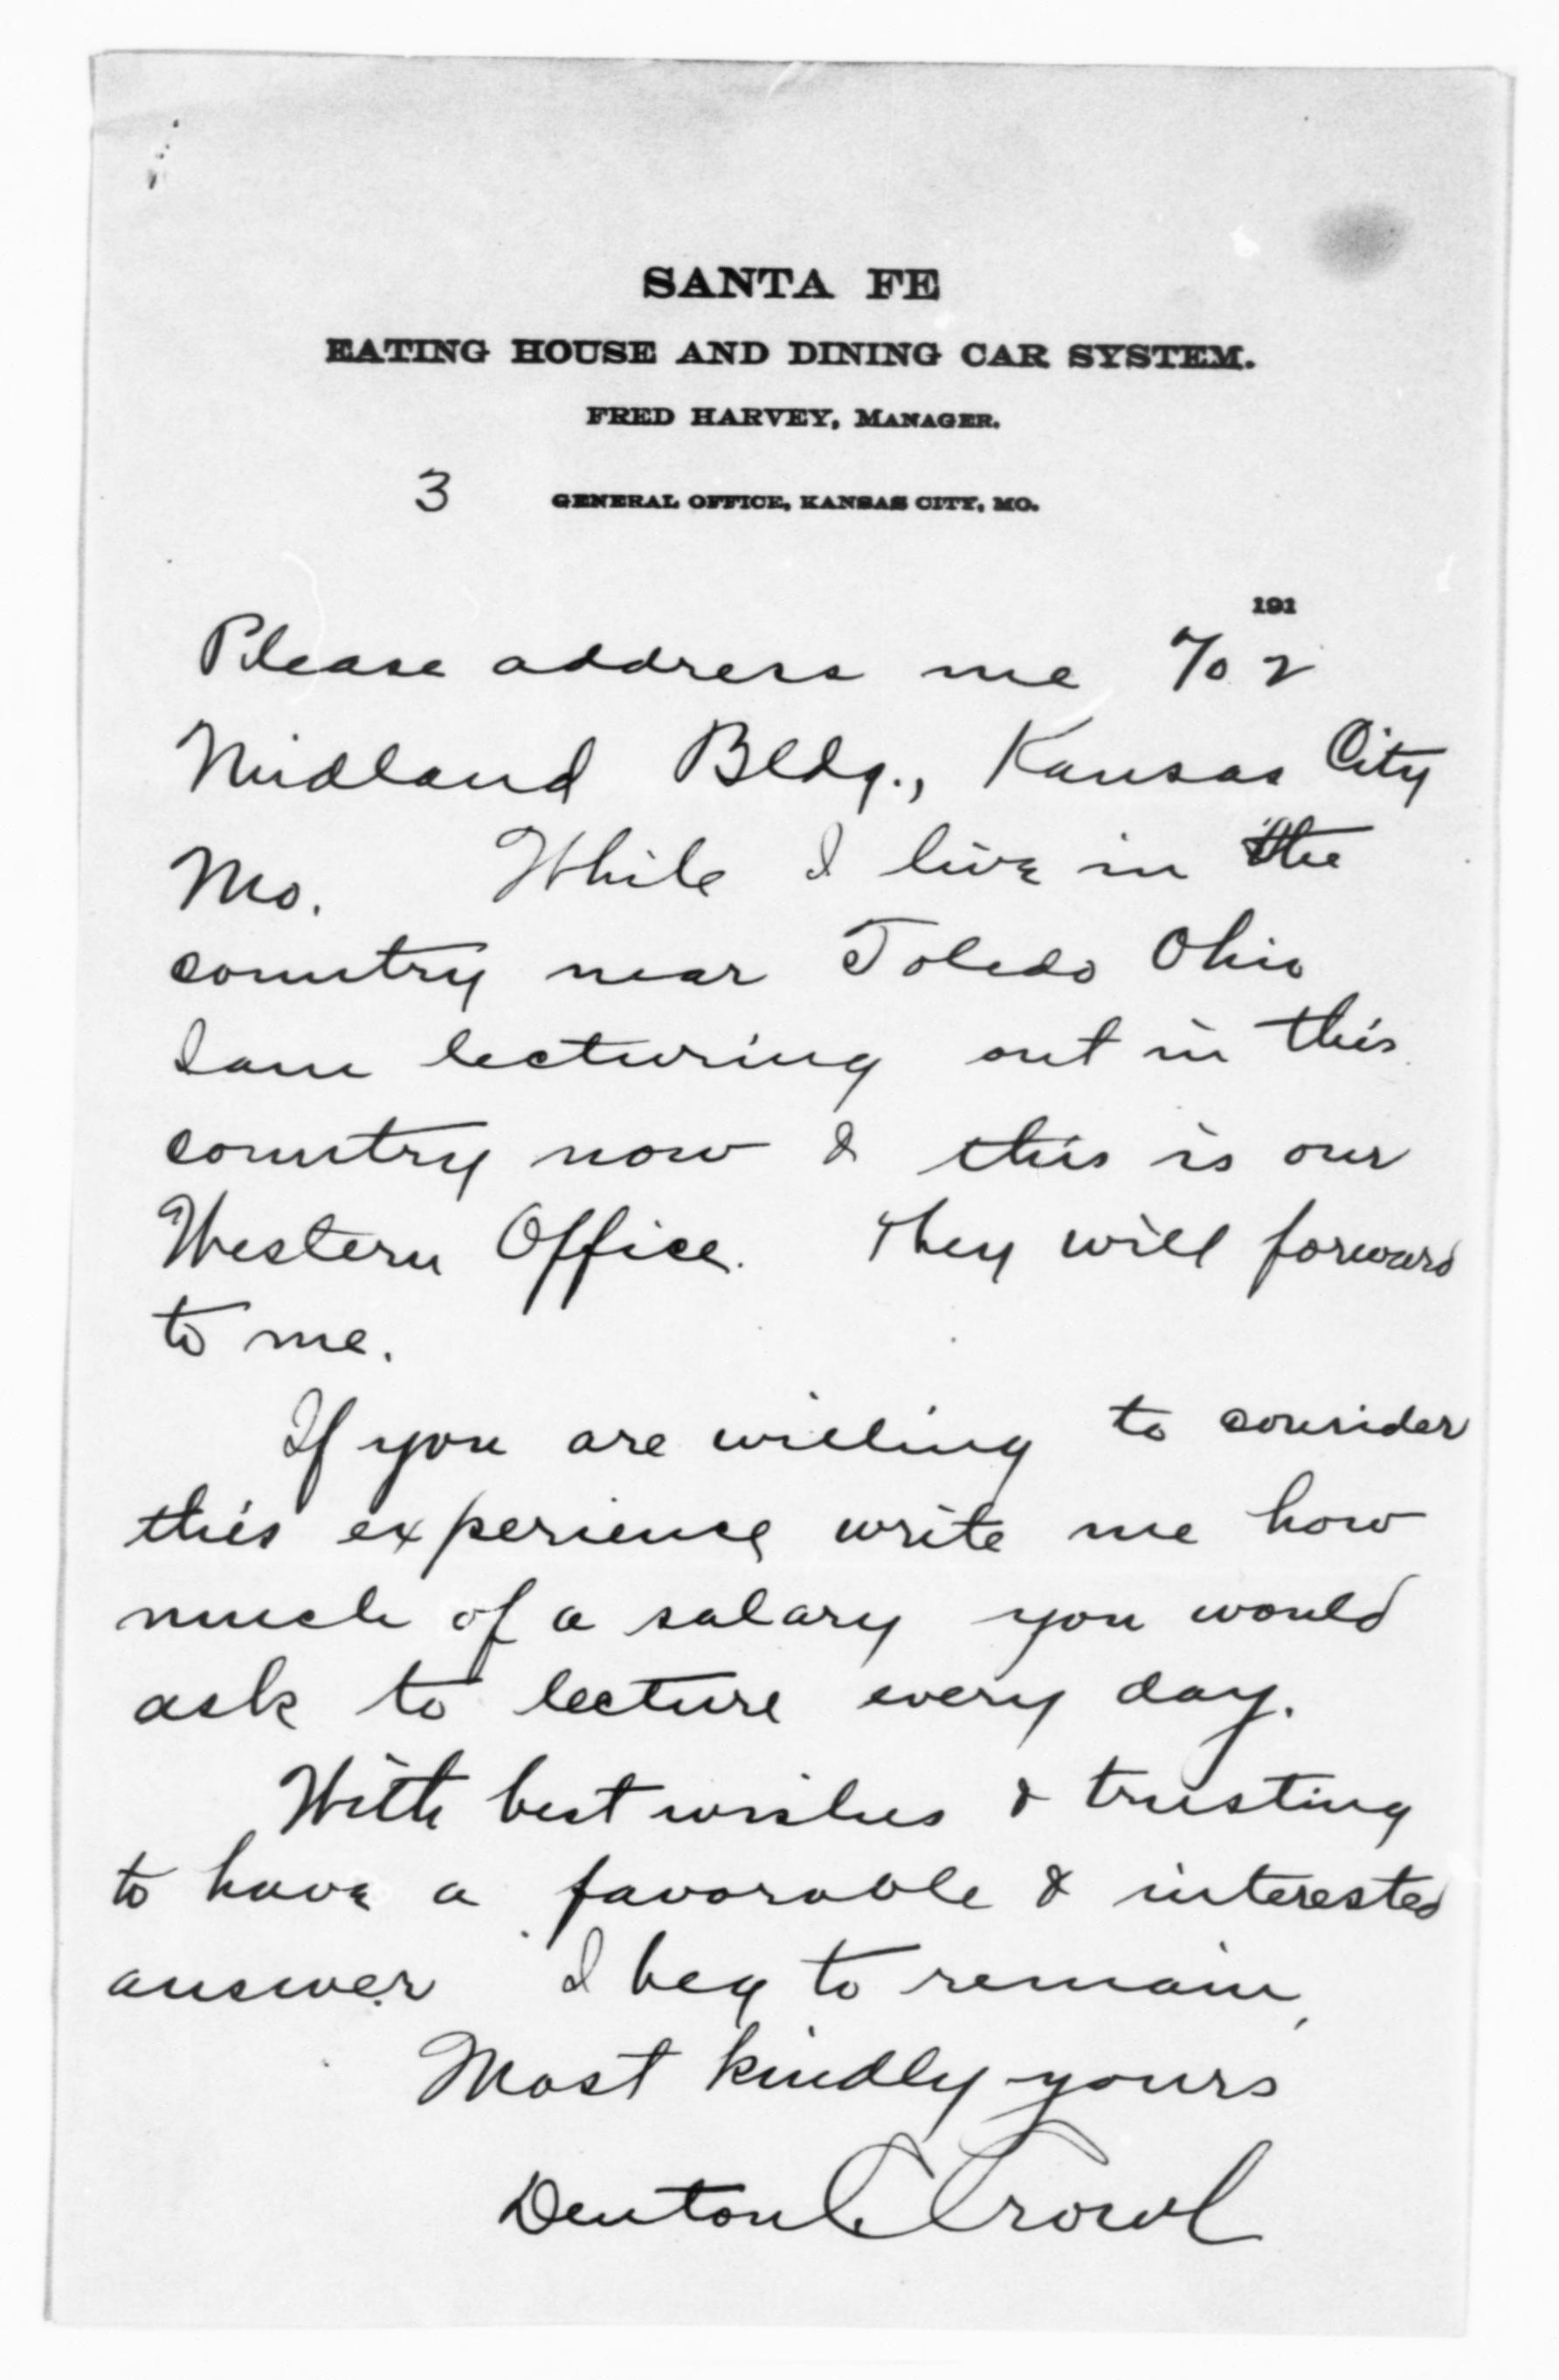 SANTA FE
EATING HOUSE AND DINING CAR SYSTEM.
FRED HARVEY, MANAGER.
3 GENERAL OFFICE, KANSAS CITY, MO.
191
Please address me % 2
Midland Bldg., Kansas City
Mo. While I live in the
country near Toledo Ohio
I am lecturing out in this
country now & this is our
Western Office. They will forward
to me.
If you are willing to consider
this experience write me how
much of a salary you would
ask to lecture every day.
With best wishes & trusting
to have a favorable & interested
answer I beg to remain,
Most kindly yours
Denton C. Crowl